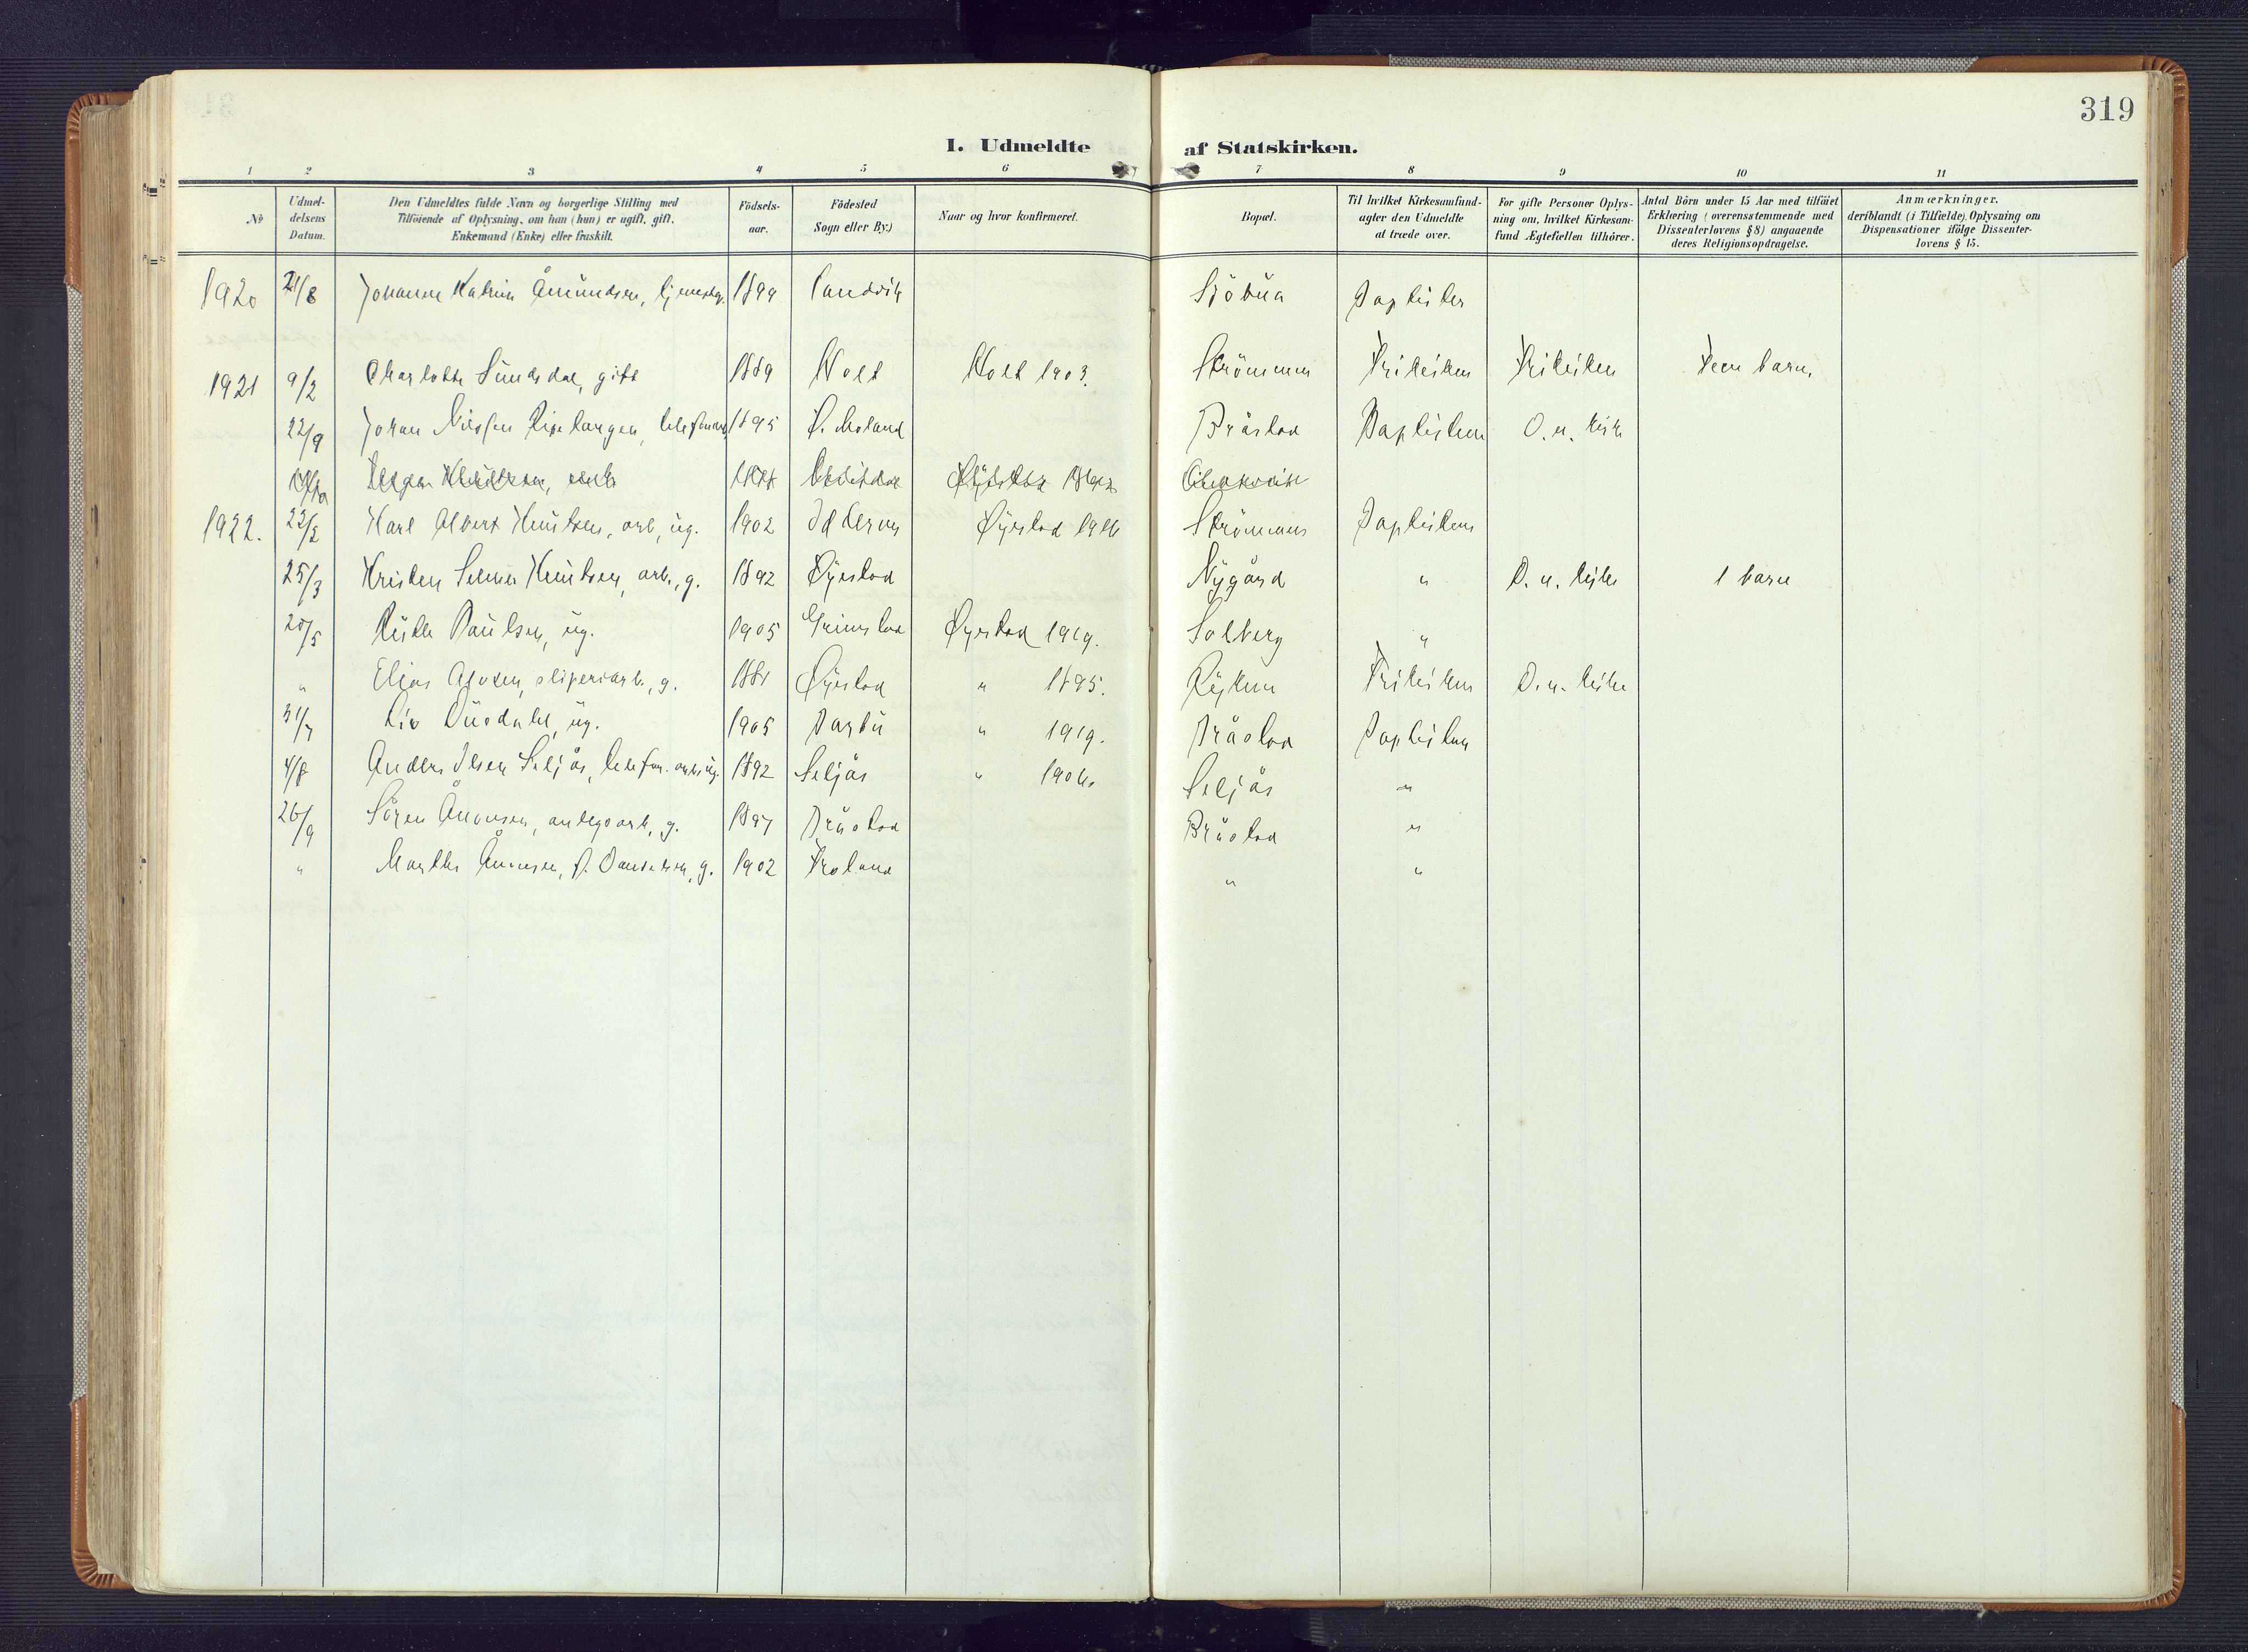 319
1. Udmeldte af Statskirken.
1 2 3 4 5 6 7 8 9 10 11
No
Udmel-
delsens
Datum.
Den Udmeldtes fulde Navn og borgerlige Stilling med
Tilföiende af Oplysning, om han (hun) er ugift, gift,
Enkemand (Enke) eller fraskilt.
Födsels-
aar.
Födested
Sogn eller By.)
Naar og hvor konfirmeret.
Bopæl.
Til hvilket Kirkesamfund
agter den Udmeldte
at træde over.
For gifte Personer Oplys-
ning om, hvilket Kirkesam-
fund Ægtefællen tilhörer.
Antal Börn under 15 Aar med tilföiet
Erklæring (overensstemmende med
Dissenterlovens § 8) angaaende
deres Religionsopdragelse.
Anmærkninger.
deriblandt (i Tilfælde) Oplysning om
Dispensationer ifölge Dissenter-
lovens § 15.
1920 21/8 Johanne Katrine Åmundsen, 1899 Landvik Baptisten
1921 9/2 Charlotte Sundsdal, gift 1889 Holt Holt 1903. Strömmen Frikirken Frikirken Fem barn
22/9 Johan 1895 Ø. Moland Bråstad Baptisten D. n. kirke
1922. 22/2 Karl Albert Knutsen, arb., ug. 1902 Øyestad 1916 Strömmen Baptisten
25/3 Kristen Selmer Knutsen, arb., g. 1892 Øyestad Nygård " D. n. kirke 1 barn
20/5 Ruth Paulsen, ug. 1905 Grimstad Øyestad 1919. Solberg "
" Elias sliperiarb., g. 1881 Øyestad " 1895. Rykene Frikirken D. n. kirke
31/7 Liv ug. 1905 Barbu " 1919. Bråstad Baptisten
4/8 Anders Olsen Seljås, 1892 Seljås " Seljås "
26/9 Sören Åmonsen, anlegsarb., g. 1897 Bråstad Bråstad "
" Marthe Åmonsen, f. g. 1902 Froland " "